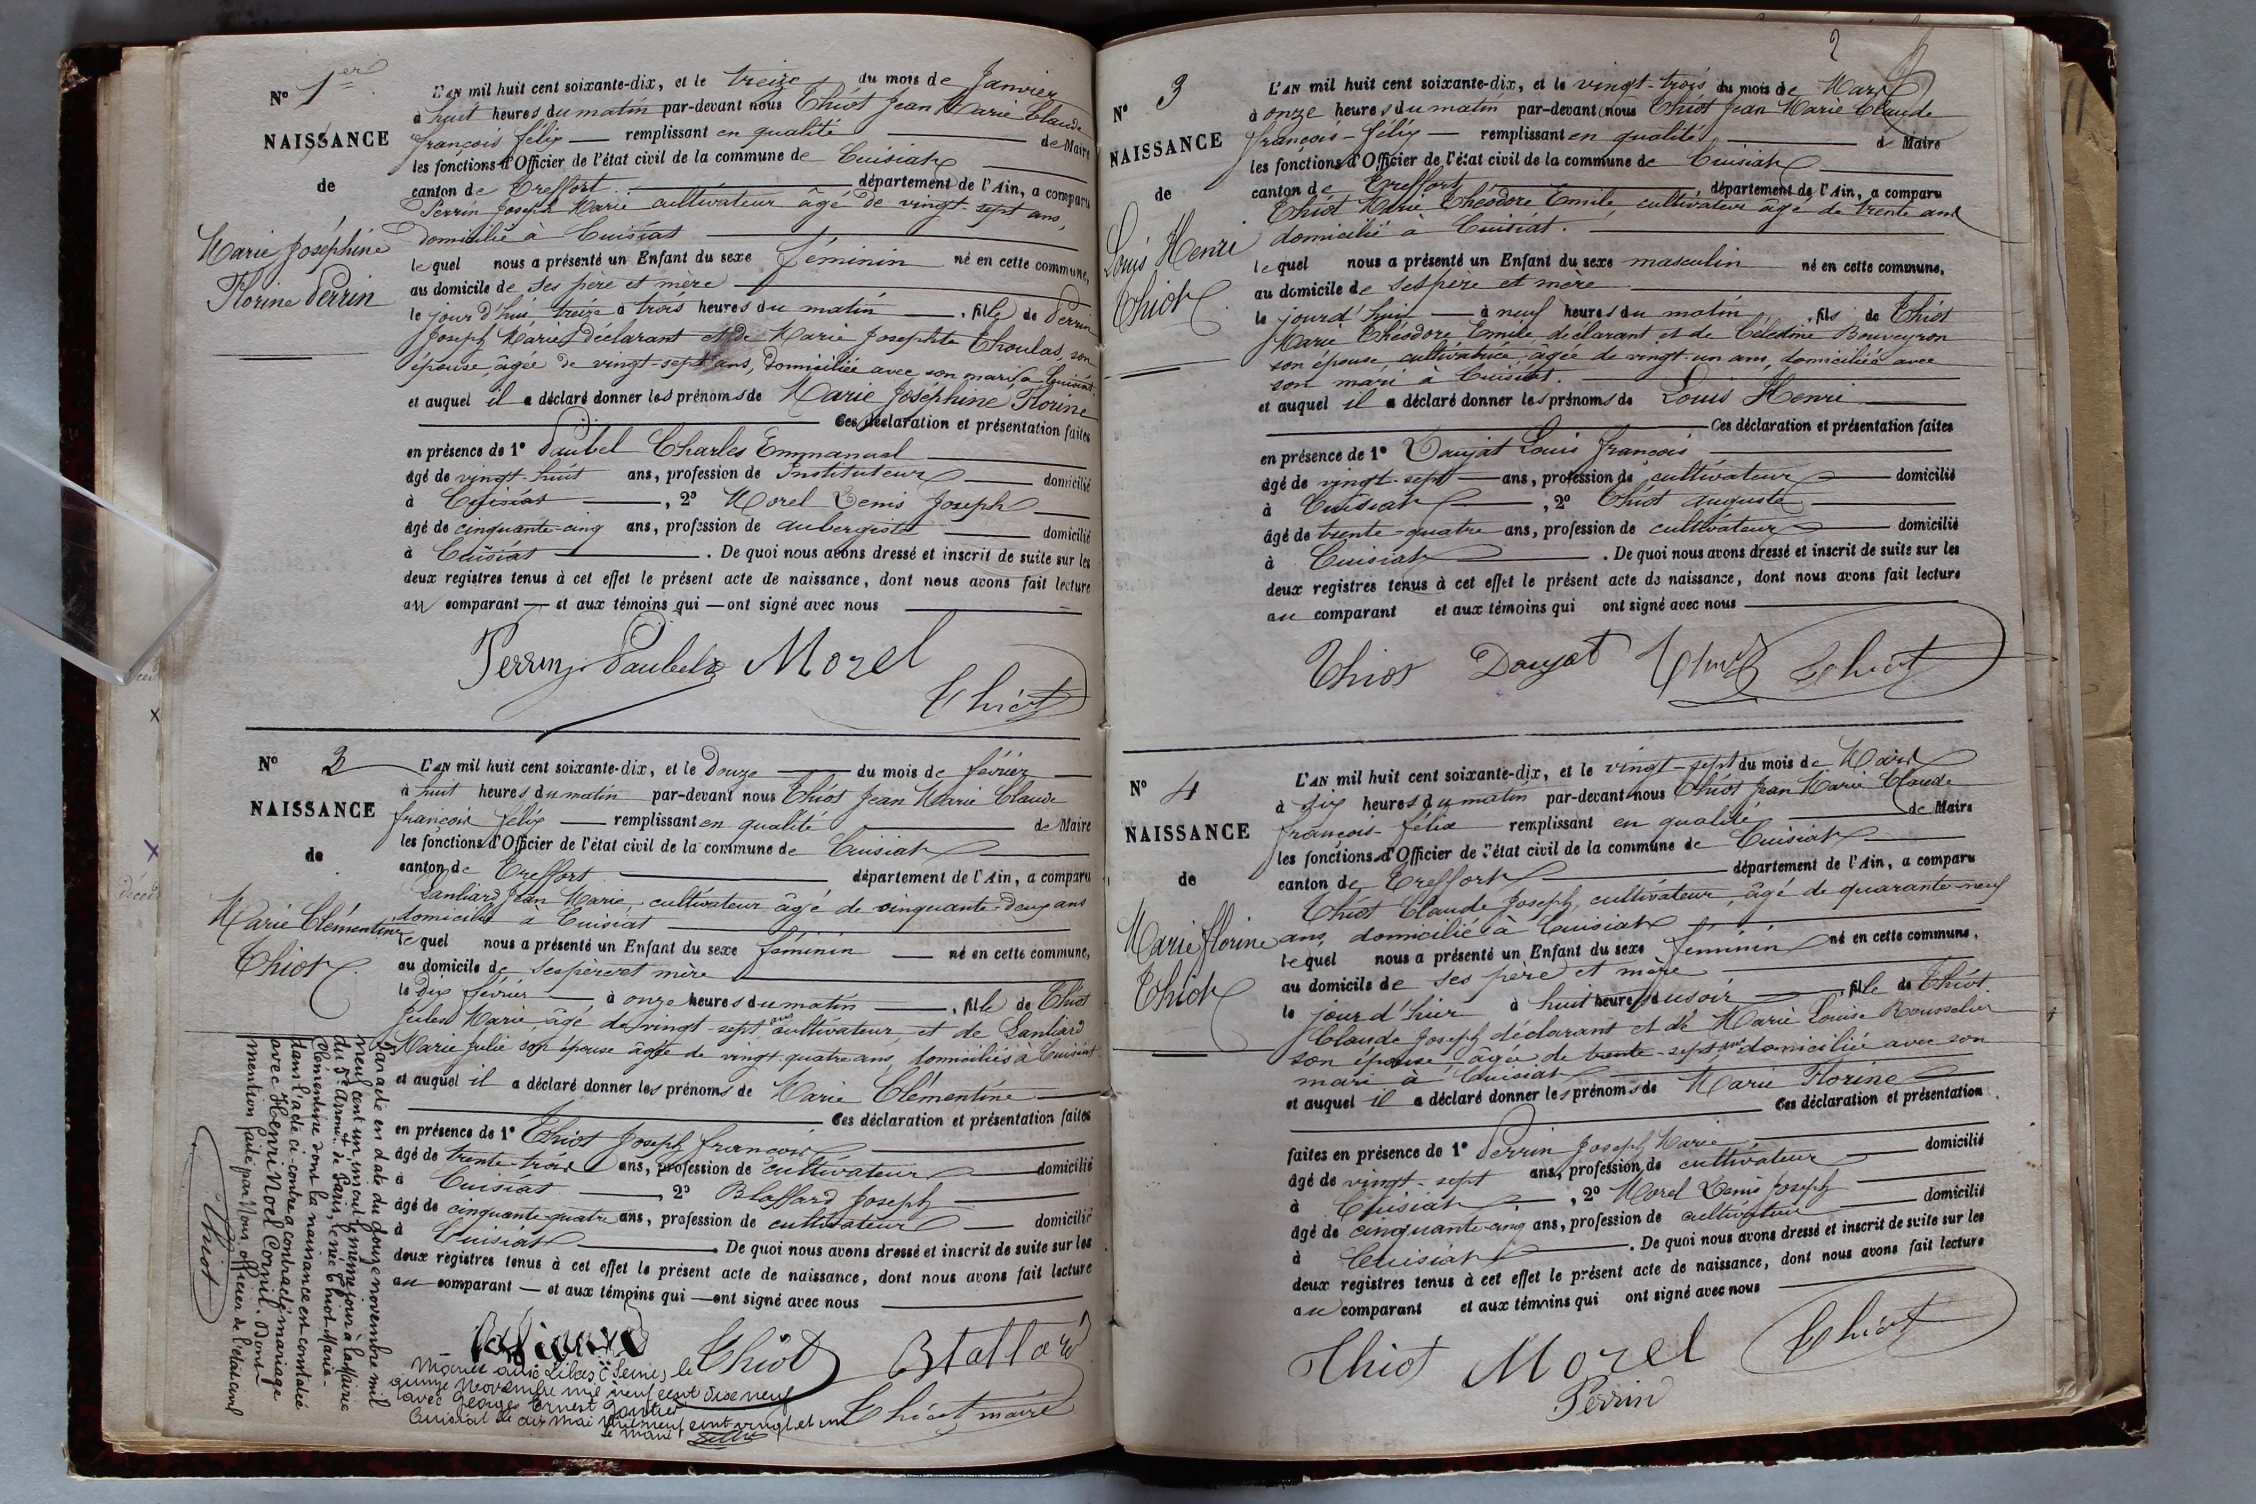 Nº 1er
NAISSANCE
de
Marie Joséphine
Florine Perrin
L'AN mil huit cent soixante-dix, et le treize du mois de Janvier
à huit heures du matin par-devant nous Thiot Jean Marie Claude
françois félix remplissant en qualité de Maire
les fonctions d'Officier de l'état civil de la commune de Cuisiat
canton de Treffort département de l'Ain, a comparu
Perrin Joseph Marie cultivateur âgé de vingt-sept ans,
domicilié à Cuisiat
lequel nous a présenté un Enfant du sexe féminin né en cette commune,
au domicile de ses père et mère
le jour d'hui treize à trois heures du matin, fille de Perrin
Joseph Marie déclarant et de Marie Josephte Choulas, son
épouse, âgée de vingt-sept ans, domiciliée avec son mari à Cuisiat.
et auquel il a déclaré donner les prénoms de Marie Joséphine Florine
Ces déclaration et présentation faites
en présence de 1º Paubel Charles Emmanuel
âgé de vingt-huit ans, profession de Instituteur domicilié
à Cuisiat, 2º Morel Denis Joseph
âgé de cinquante-cinq ans, profession de aubergiste domicilié
à Cuisiat. De quoi nous avons dressé et inscrit de suite sur les
deux registres tenus à cet effet le présent acte de naissance, dont nous avons fait lecture
au comparant et aux témoins qui ont signé avec nous
Perrin Paubel Morel
Thiot
Nº 2
NAISSANCE
de
Marie Clémentine
Thiot
L'AN mil huit cent soixante-dix, et le Douze du mois de février
à huit heures du matin par-devant nous Thiot Jean Marie Claude
françois félix remplissant en qualité de Maire
les fonctions d'Officier de l'état civil de la commune de Cuisiat
canton de Treffort département de l'Ain, a comparu
Lanliard Jean Marie, cultivateur âgé de cinquante-deux ans
domicilié à Cuisiat
lequel nous a présenté un Enfant du sexe féminin né en cette commune,
au domicile de ses père et mère
le dix février à onze heures du matin, fille de Thiot
Jules Marie, âgé de vingt-sept ans cultivateur, et de Lanliard
Marie Julie son épouse âgée de vingt-quatre ans, domiciliés à Cuisiat
et auquel il a déclaré donner les prénoms de Marie Clémentine
Ces déclaration et présentation faites
en présence de 1º Thiot Joseph françois
âgé de trente-trois ans, profession de cultivateur domicilié
à Cuisiat, 2º Blaffard Joseph
âgé de cinquante-quatre ans, profession de cultivateur domicilié
à Cuisiat. De quoi nous avons dressé et inscrit de suite sur les
deux registres tenus à cet effet le présent acte de naissance, dont nous avons fait lecture
au comparant et aux témoins qui ont signé avec nous
Thiot Blaffard
Thiot maire
Mariée aux Lilas (Seine) le
quinze Novembre mil neuf cent dix neuf
avec Georges Ernest Gautier
Cuisiat le dix Mai mil neuf cent vingt et un
le maire
Par acte en date du douze novembre mil
neuf cent un inscrit le même jour à la Mairie
du 5e arront de Paris, la née Thiot Marie-
Clémentine dont la naissance est constatée
dans l'acte ci-contre a contracté mariage
avec Henri Noël Cornil. Dont
mention faite par Nous, officier de l'état civil
Thiot
2
Nº 3
NAISSANCE
de
Louis Henri
Thiot
L'AN mil huit cent soixante-dix, et le vingt-trois du mois de Mars
à onze heures du matin par-devant nous Thiot Jean Marie Claude
françois-félix remplissant en qualité de Maire
les fonctions d'Officier de l'état civil de la commune de Cuisiat
canton de Treffort département de l'Ain, a comparu
Thiot Marie Théodore Emile, cultivateur âgé de trente ans
domicilié à Cuisiat.
lequel nous a présenté un Enfant du sexe masculin né en cette commune,
au domicile de ses père et mère
le jourd'hui à neuf heures du matin, fils de Thiot
Marie Théodore Emile déclarant et de Célestine Bouveyron
son épouse, cultivatrice, âgée de vingt-un ans, domiciliée avec
son mari à Cuisiat.
et auquel il a déclaré donner les prénoms de Louis Henri
Ces déclaration et présentation faites
en présence de 1º Doujat Louis françois
âgé de vingt-sept ans, profession de cultivateur domicilié
à Cuisiat, 2º Thiot auguste
âgé de trente-quatre ans, profession de cultivateur domicilié
à Cuisiat. De quoi nous avons dressé et inscrit de suite sur les
deux registres tenus à cet effet le présent acte de naissance, dont nous avons fait lecture
au comparant et aux témoins qui ont signé avec nous
Thiot Doujat Thiot Thiot
Nº 4
NAISSANCE
de
Marie florine
Thiot
L'AN mil huit cent soixante-dix, et le vingt-sept du mois de Mars
à six heures du matin par-devant nous Thiot Jean Marie Claude
françois-félix remplissant en qualité de Maire
les fonctions d'Officier de l'état civil de la commune de Cuisiat
canton de Treffort département de l'Ain, a comparu
Thiot Claude Joseph, cultivateur, âgé de quarante-neuf
ans, domicilié à Cuisiat
lequel nous a présenté un Enfant du sexe féminin né en cette commune,
au domicile de ses père et mère
le jour d'hier à huit heures du soir, fille de Thiot
Claude Joseph déclarant et de Marie Louise Rousselier
son épouse âgée de trente-sept ans domiciliée avec son
mari à Cuisiat
et auquel il a déclaré donner les prénoms de Marie Florine
Ces déclaration et présentation
faites en présence de 1º Perrin Joseph Marie domicilié
âgé de vingt-sept ans, profession de cultivateur
à Cuisiat, 2º Morel Denis Joseph
âgé de cinquante-cinq ans, profession de cultivateur domicilié
à Cuisiat. De quoi nous avons dressé et inscrit de suite sur les
deux registres tenus à cet effet le présent acte de naissance, dont nous avons fait lecture
au comparant et aux témoins qui ont signé avec nous
Thiot Morel Thiot
Perrin